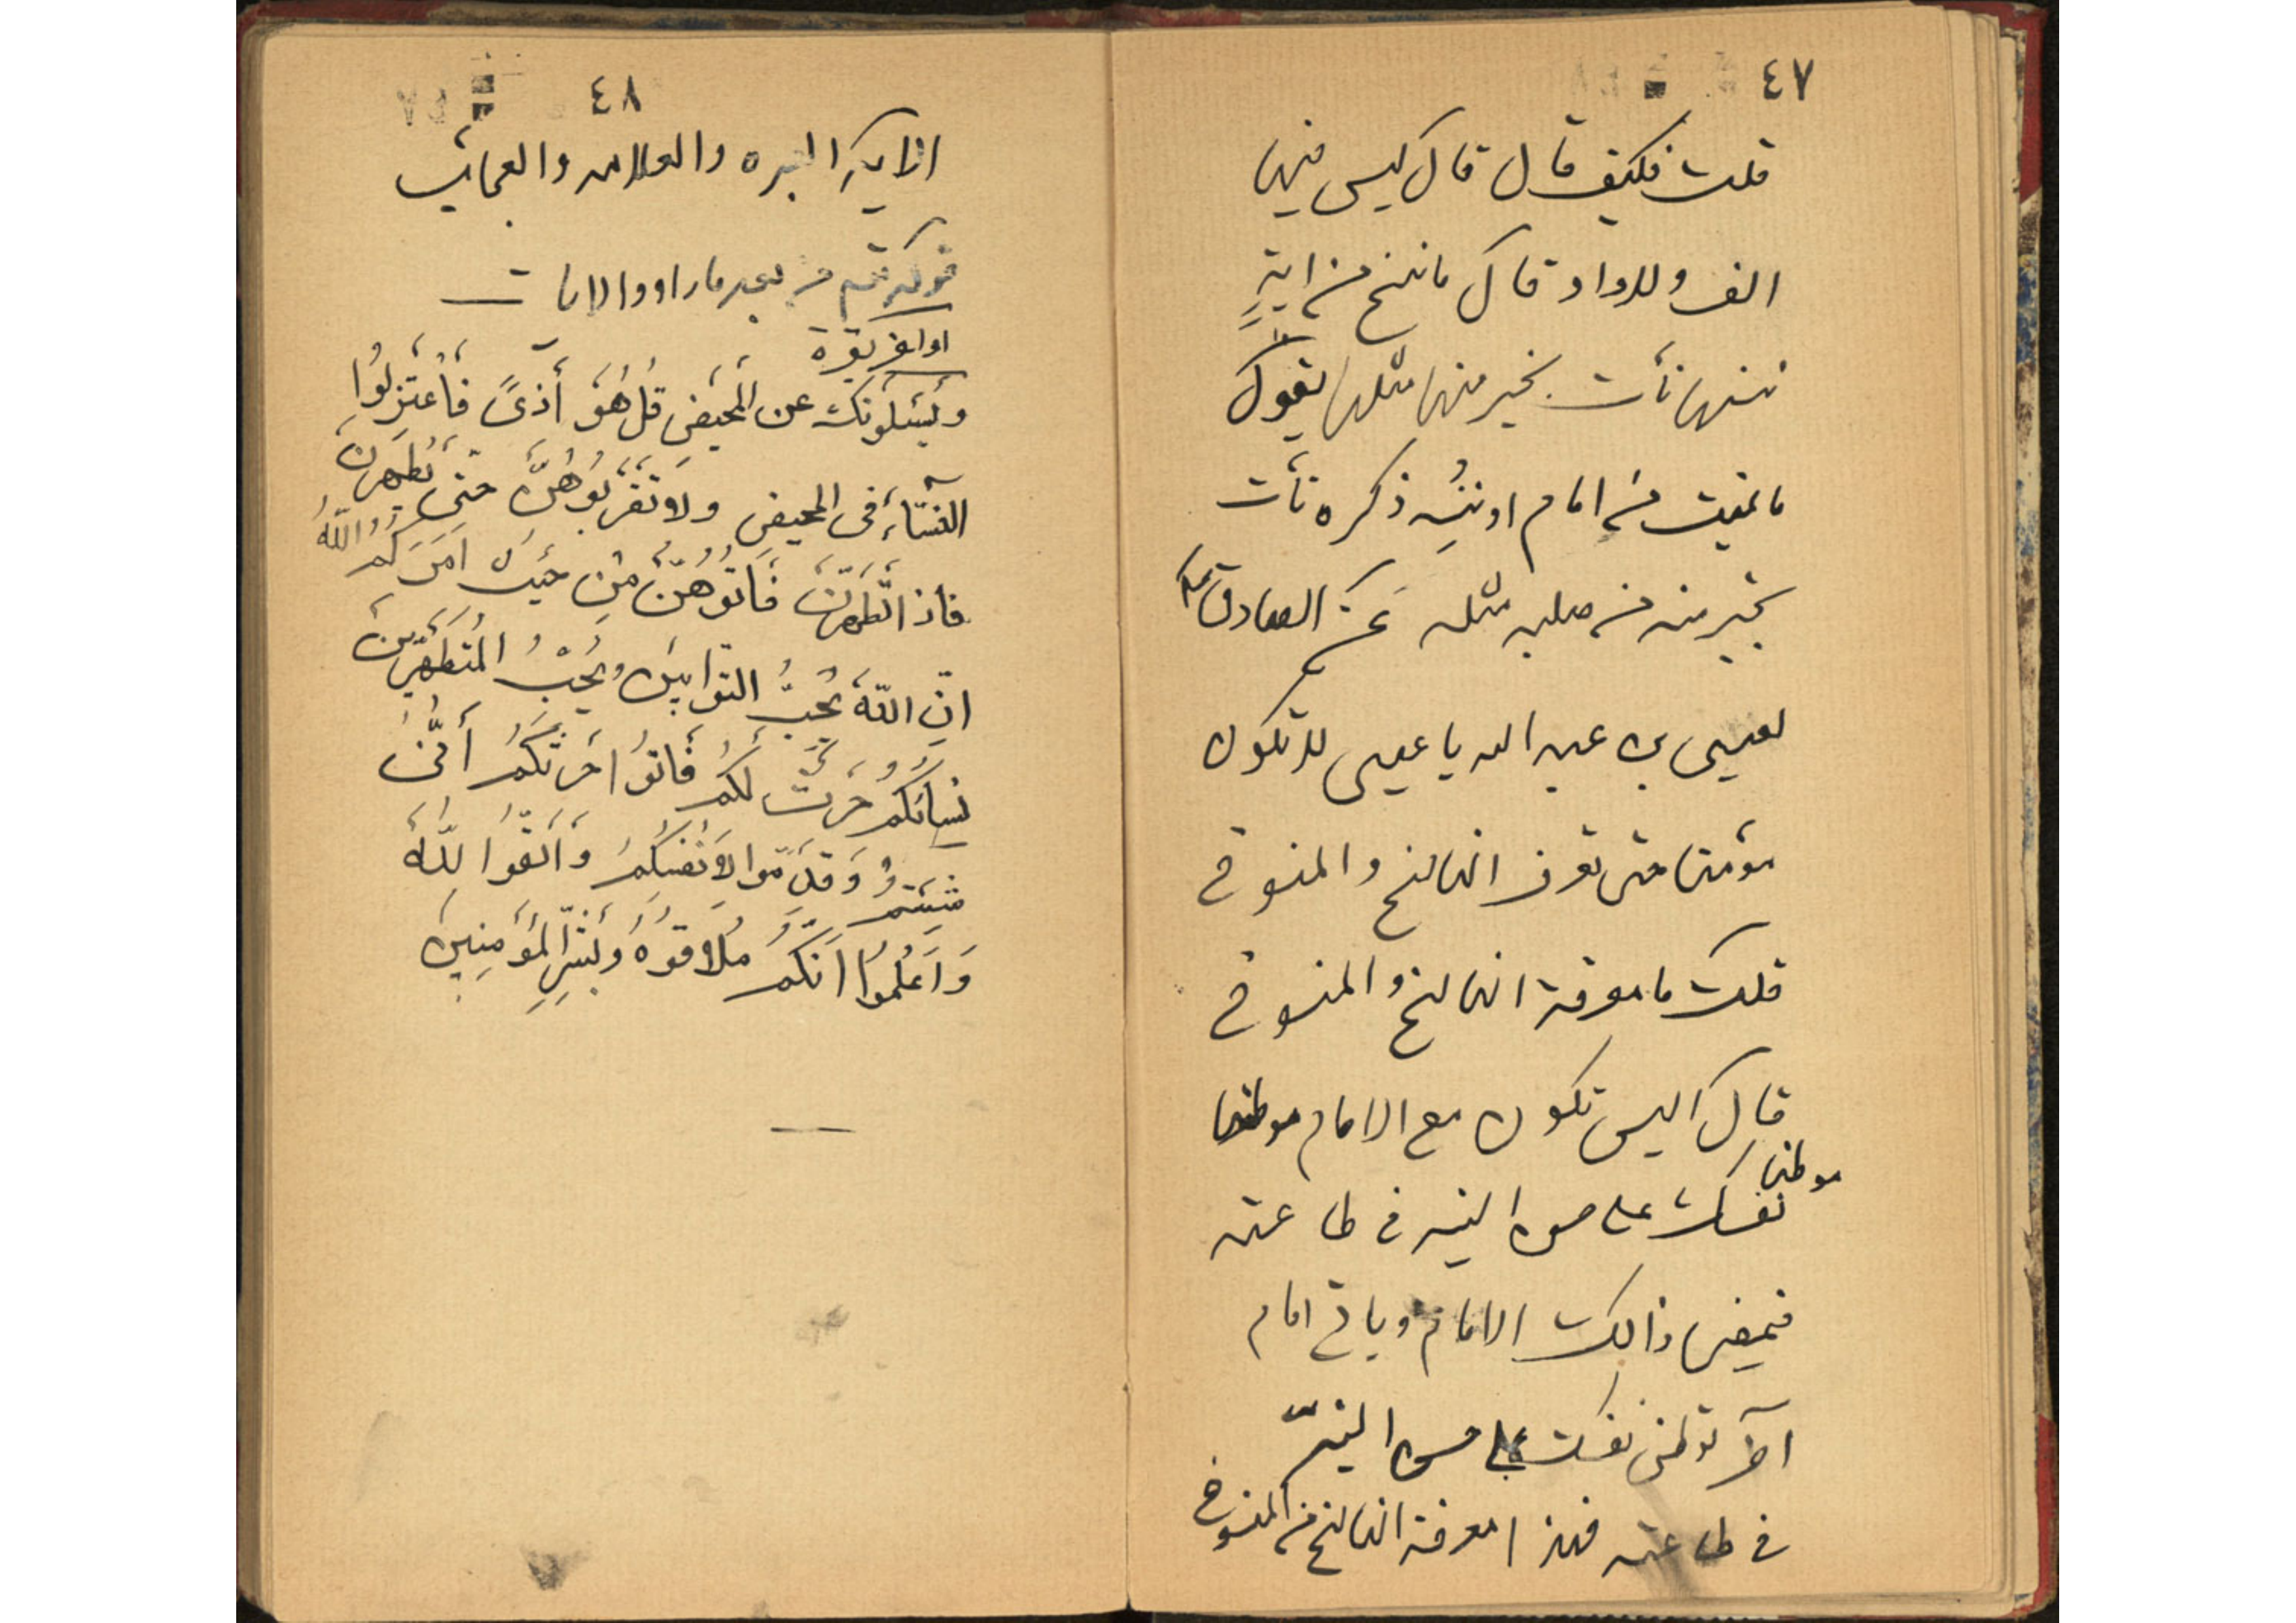 ٤٧
قلت فكيف قال قال ليس فيها
الف ولا واو قال ما ننسخ من اية
ننسها نأت بخير منها مثلها يقول
ما نميت من امام او ننسِ ذكره نأت
بخير منه من صلبه مثله عن الصادق
لعيسى بن عبد الله يا عيسى لا تكون
مؤمنا حتى تعرف الناسخ والمنسوخ
قلت ما معرفة الناسخ والمنسوخ
قال اليس تكون مع الامام موطنا
موطنا
نفسك على حسن النيه في طاعته
فيمضى ذالك الامام وياتي امام
آخر توطن نفسك على حسن النيّه
في طاعته فهذا معرفة الناسخ من المنسوخ
٤٨
الايه العبره والعلامه والعجائب
قوله تعـ من بعد ما راوا الايات
اواخر بقرة
وَيَسْئَلُونَكَ عن المَحَيضِ قُل هُوَ أَذىً فَأعتَزِلُوا
النساءَ فى المحيضِ ولا تَقرَبُوهُنَّ حتى يَطهُرنَ
فاذا تَطَهَّرنَ فَاتُوهُنَّ مِن حَيثُ اَمَرَكُمُ اللّهُ
انّ اللّهَ يُحِبُّ التوّابينَ ويُحِبُّ المُتَطَهِّرينَ
نسائكم حَرثٌ لَكُم فَاتُوا حَرثَكُم أنّى
شِئتُم وَقَدِّمُوا لِاَنفُسِكُم وَاتَّقُوا للّهَ
وَاَعلَمُوا اَنَّكُم مُلاقوُهُ وَبَشِّرِ المُؤمِنِينَ